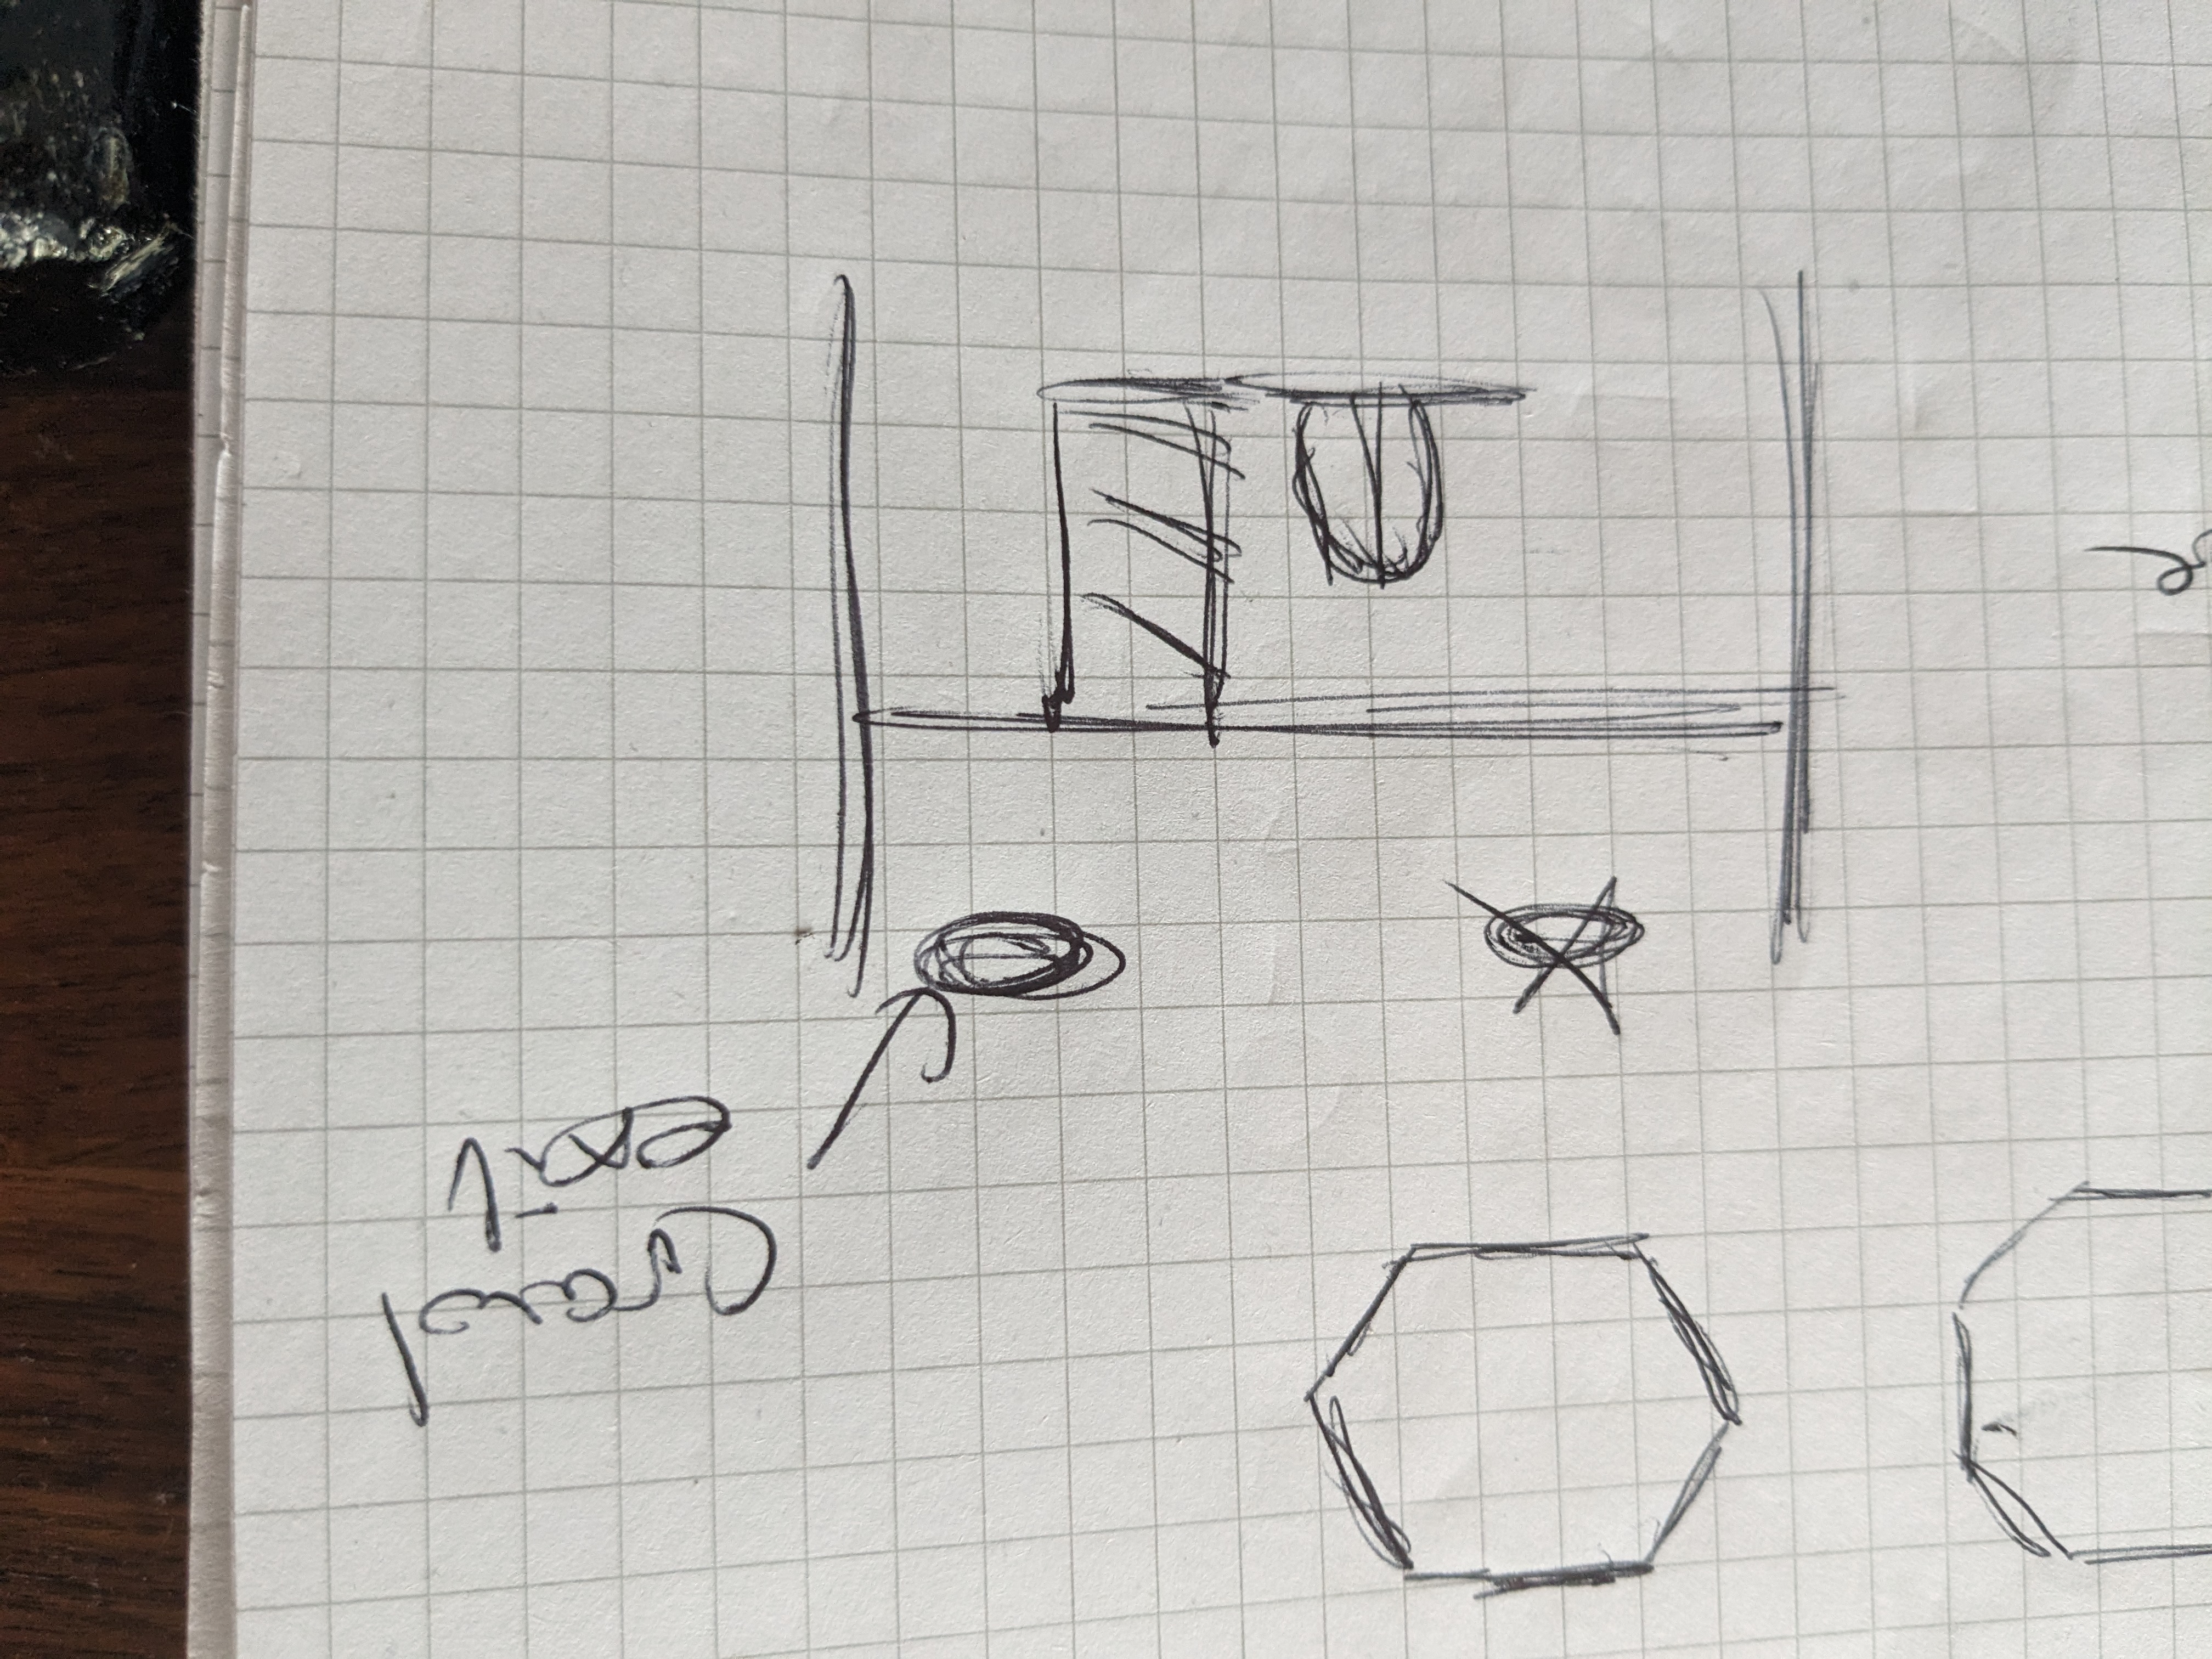 Crawl
exit